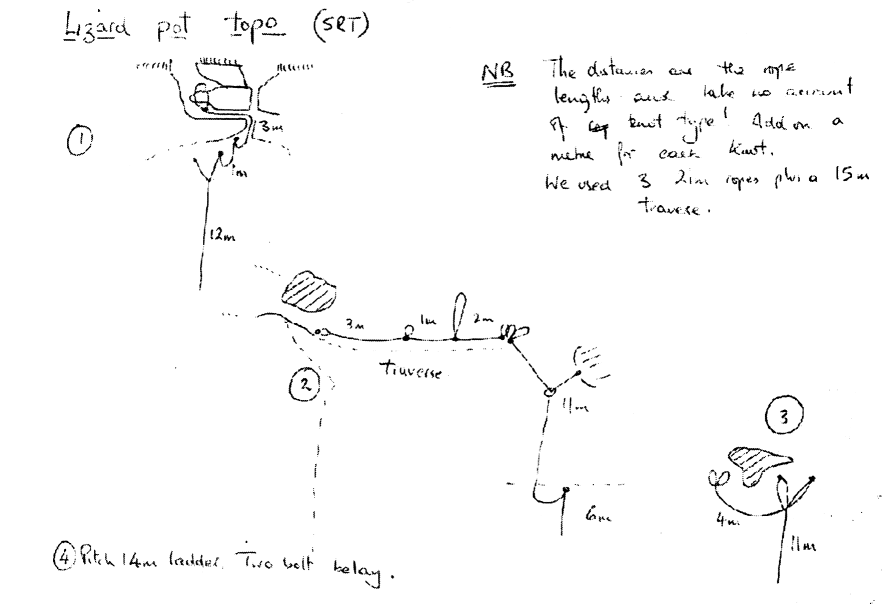 Lizard pot topo (SRT)
NB The distances are the rope
lengths and take no account
of knot type! Add on a
metre for each knot.
We used 3 21m ropes plus a 15m
traverse.
1
3m
1m
12m
3m
1m
2m
Traverse
2
11m
6m
3
4m
11m
4 Pitch 14m ladder. Two bolt belay.